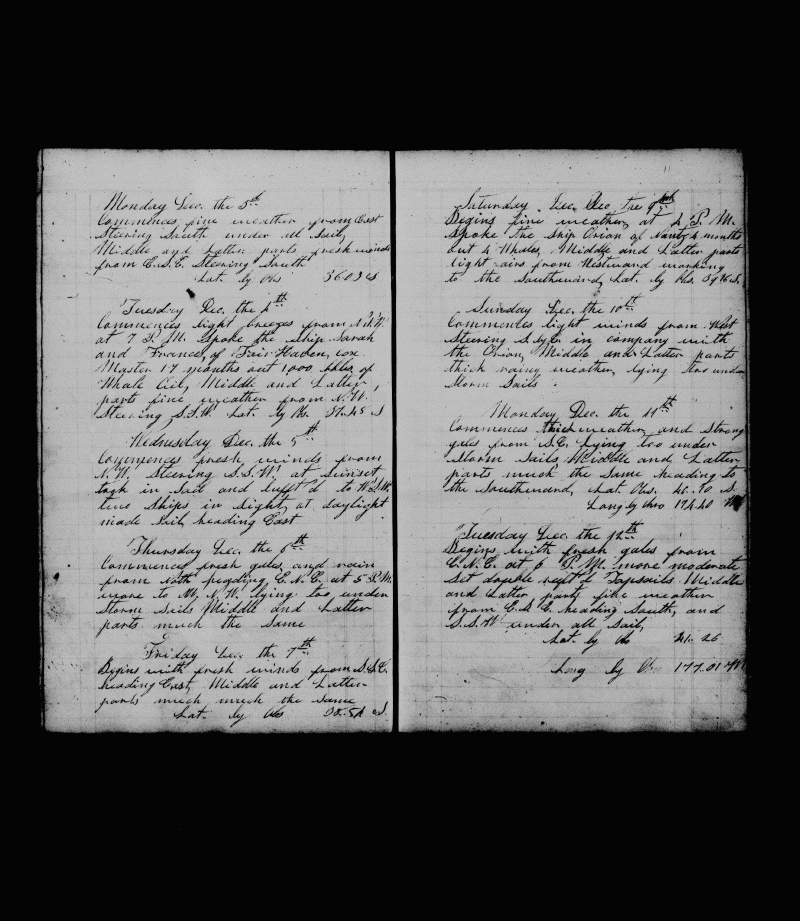 Monday Dec. the 3th
Commences fine weather from East
Steering South under all Sail,
Middle and Latter parts fresh winds
from E.S.E. Steering South
Lat. by Obs 36.03 S
Tuesday Dec. the 4th
Commences light breezes from N.W.
at 7 P.M. Spoke the Ship Sarah
and Frances, of Fair Haven, cox
Master 17 months out 1000 bbls of
Whale Oil, Middle and Latter,
parts fine weather from N.W.
Steering S.S.W. Lat. by Obs. 37.45 S
Wednesday Dec. the 5th
Commences fresh winds from
N.W. Steering S.S.W. at Sunset
took in Sail and luff'd to W.S.W.
two Ships in Sight, at daylight
made Sail, heading East
Thursday Dec. the 6th
Commences fresh gales, and rain
from North heading E.N.E. at 5 P.M.
wore to N.W. lying too, under
Storm Sails Middle and Latter
parts much the Same
Friday Dec. the 7th
Begins with fresh winds from S.S.E.
heading East, Middle and Latter
parts much much the Same
Lat. by Obs S
Saturday Dec. Dec the
Begins fine weather, at 2 P.M.
Spoke the Ship Orion of Nant, 4 months
out 4 Whales, Middle and Latter parts
light airs from Westward working
to the Southward, Lat. by Obs. 39.16 S.
Sunday Dec. the 10th
Commences light winds from West
Steering S.by E. in company with
the Orion, Middle and Latter parts
thick rainy weather, lying too under
Storm Sails.
Monday Dec. the 11th
Commences thick weather and Strong
gales from S.E. lying too under
Storm Sails, Middle and Latter
parts much the Same heading to
the Southward, Lat. Obs. S.
Long by Chro 174.40 W
Tuesday Dec. the 12th
Begins with fresh gales from
E.N.E. at 6 P.M. more moderate
Set double reef'd Topsails Middle
and Latter parts fine weather
from E.S.E. heading South, and
S.S.W. under all Sail,
Lat by Obs 41.26
Long by 177.01 W